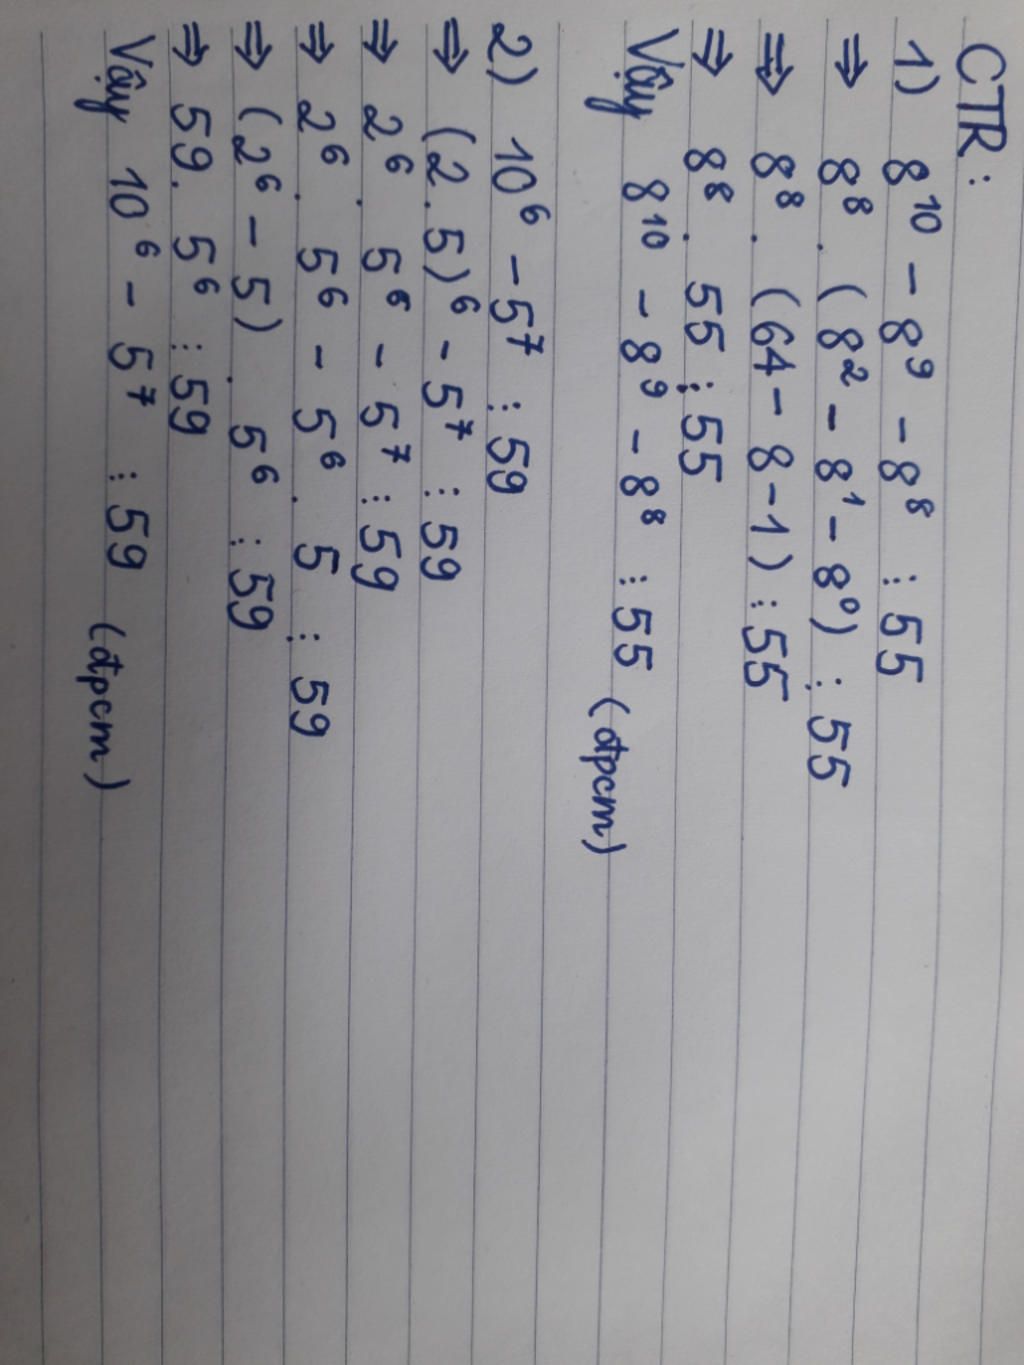 CTR:
1) 8¹⁰ - 8⁹ - 8⁸ ⋮ 55
⇒ 8⁸ . (8² - 8¹ - 8⁰) ⋮ 55
⇒ 8⁸ . (64 - 8 - 1) ⋮ 55
⇒ 8⁸ . 55 ⋮ 55
Vậy 8¹⁰ - 8⁹ - 8⁸ ⋮ 55 (đpcm)
2) 10⁶ - 5⁷ ⋮ 59
⇒ (2 . 5)⁶ - 5⁷ ⋮ 59
⇒ 2⁶ . 5⁶ - 5⁷ ⋮ 59
⇒ 2⁶ . 5⁶ - 5⁶ . 5 ⋮ 59
⇒ (2⁶ - 5) . 5⁶ ⋮ 59
⇒ 59 . 5⁶ ⋮ 59
Vậy 10⁶ - 5⁷ ⋮ 59 (đpcm)